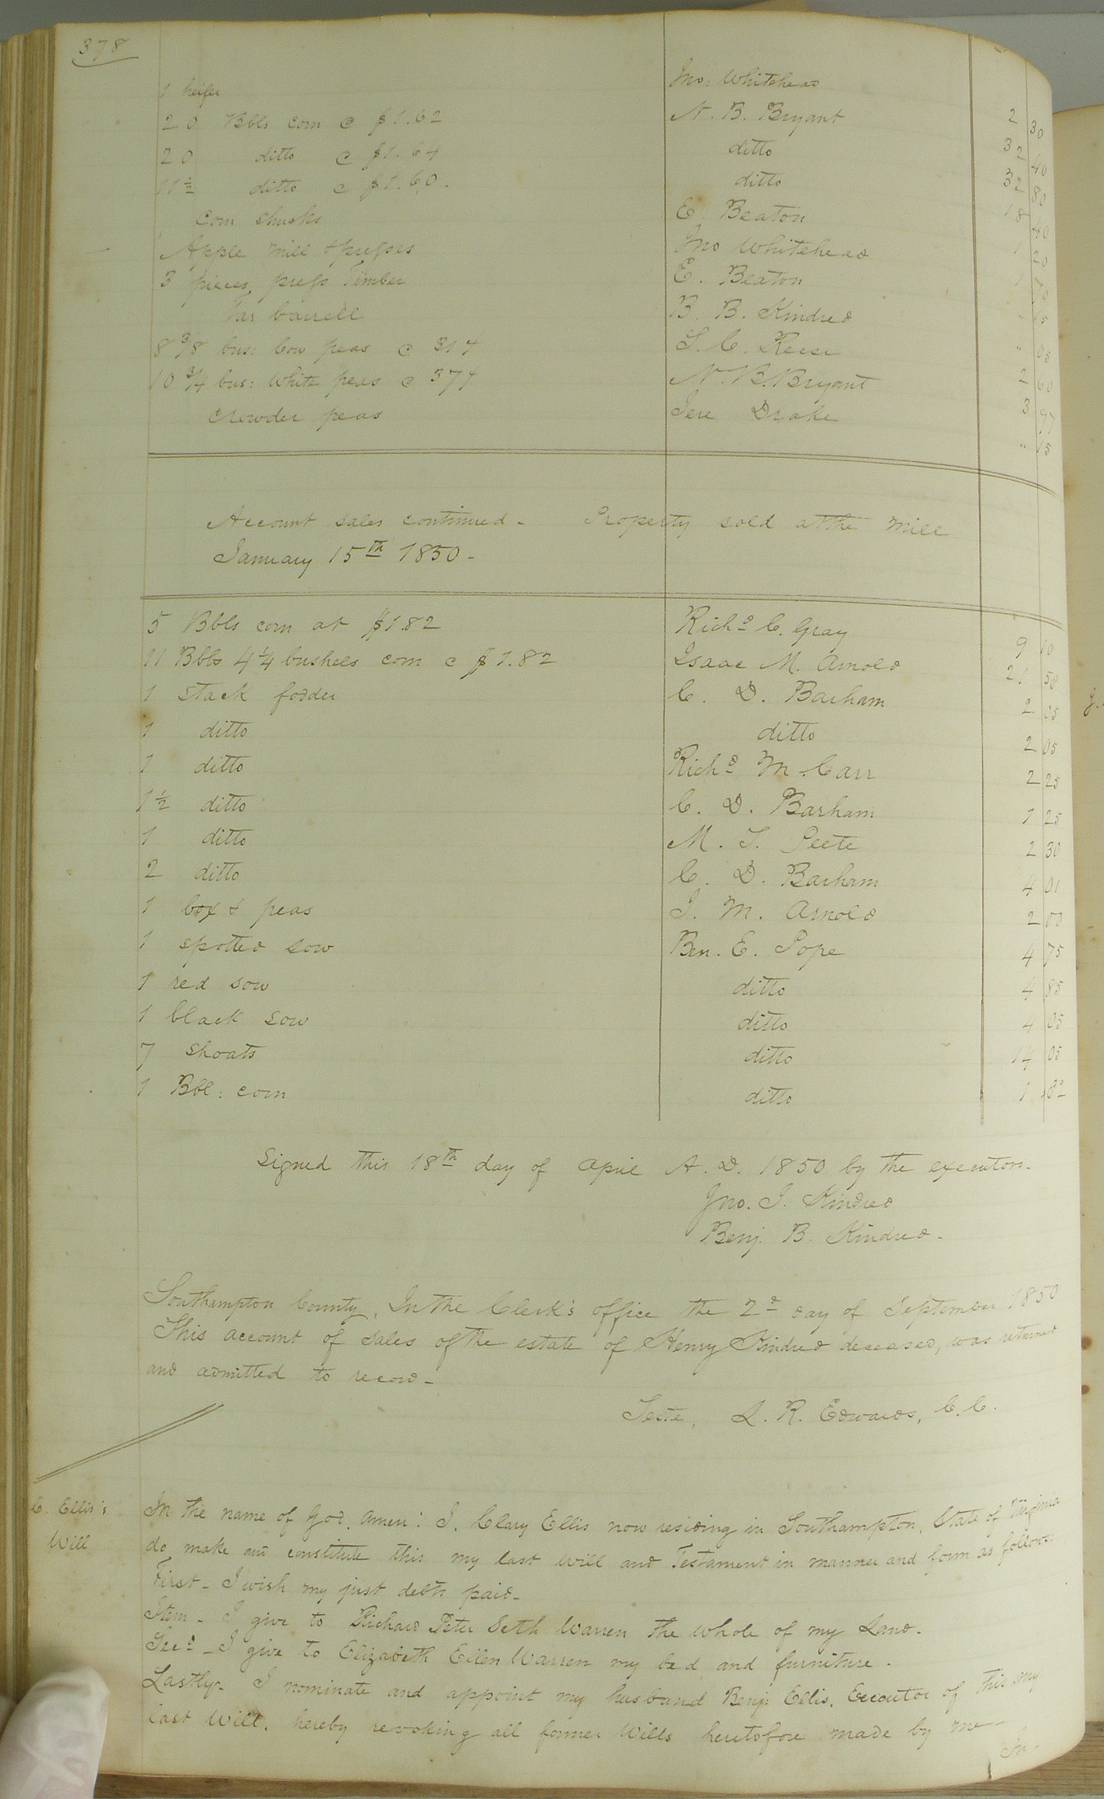 378
1 heifer Jno: Whitehead 2 30
20 Bbls corn @ $1.62 N. B. Bryant 32 40
20 ditto @ $1.64 ditto 32 80
11½ ditto @ $1.60. ditto 18 40
corn shucks E. Beaton 1 20
Apple mill & presses Jno Whitehead
3 pieces press Timber E. Beaton
Tar barrell B. B. Kindred " 05
8 3/8 bus: Cow peas @ 31 S. C. Reese 2 60
10 3/4 bus: White peas @ 37 N. B. Bryant 3 97
crowder peas Jere Drake " 15
Account sales continued - Property sold at the mill
January 15th 1850 -
5 Bbls corn at $1.82 Richd C. Gray 9 10
11 Bbls 4¼ bushels corn @ $1.82 Isaac M. Arnold 21 58
1 stack fodder C. D. Barham 2 05
1 ditto ditto 2 05
1 ditto Richd M. Carr 2 25
1½ ditto C. D. Barham 1 25
1 ditto M. T. Peete 2 30
2 ditto C. D. Barham 4 01
1 box & peas I. M. Arnold 2 00
1 spotted sow Ben. E. Pope 4 75
1 red sow ditto 4 85
1 black sow ditto 4 05
7 shoats ditto 14 05
1 Bbl: corn ditto 1 82
Signed this 18th day of April A. D. 1850 by the executors.
Jno. J. Kindred
Benj. B. Kindred -
Southampton County, In the Clerk's office the 2d day of September 1850
This account of sales of the estate of Henry Kindred deceased, was returned
and admitted to record -
Teste, L. R. Edwards, C. C.
C. Ellis's
Will
In the name of God, Amen: I, Clary Ellis now residing in Southampton, State of Virginia
do make and constitute this my last will and Testament in manner and form as follows.
First - I wish my just debts paid -
Item - I give to Richard Peter Seth Warren the whole of my Land.
Secd - I give to Elizabeth Ellen Warren my bed and furniture.
Lastly - I nominate and appoint my husband Benj: Ellis, Executor of this my
last Will, hereby revoking all former Wills heretofore made by me -
In